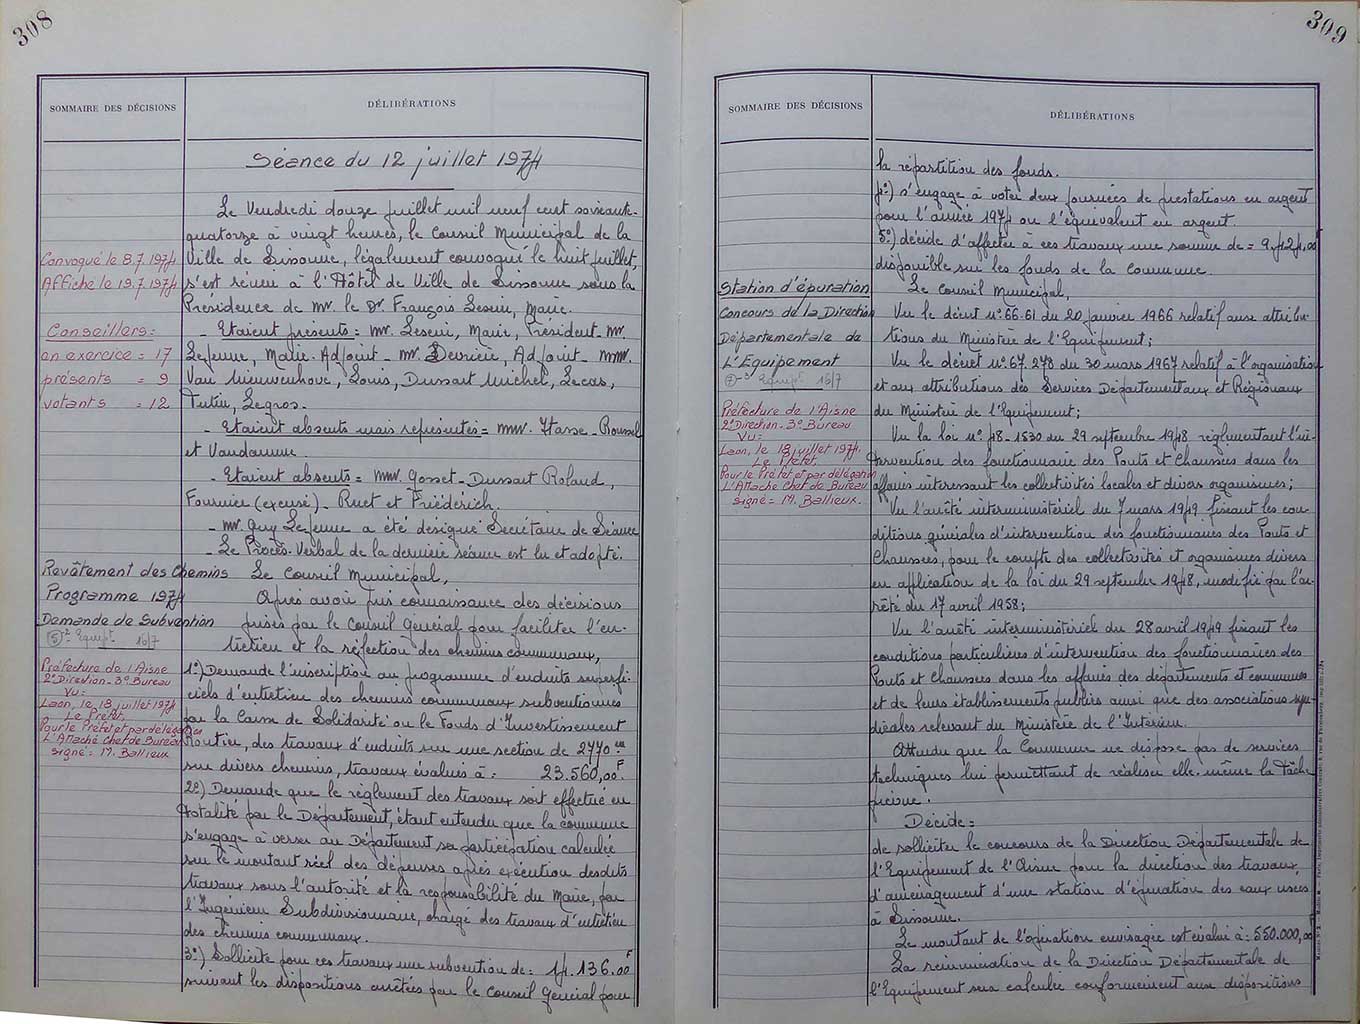 308
SOMMAIRE DES DÉCISIONS
DÉLIBÉRATIONS
Séance du 12 juillet 1974
Le Vendredi douze juillet mil neuf cent soixante-
quatorze à vingt heures, le Conseil Municipal de la
Convoqué le 8.7.1974
Ville de Sissonne, légalement convoqué le huit juillet,
Affiché le 19.7.1974
s'est réuni à l'Hôtel de Ville de Sissonne sous la
Présidence de Mr. le Dr. François Leseur, Maire.
Conseillers :
- Etaient présents = Mr. Leseur, Maire, Président - Mr.
en exercice = 17
Lejeune, Maire-Adjoint - Mr. Devrière, Adjoint - MM.
présents = 9
Van Nieuwenhove, Louis, Dussart Michel, Lecas,
votants = 12
Tutin, Legros.
- Etaient absents mais représentés = MM. Hasse - Roussel
et Vandamme.
- Etaient absents = MM. Gosset - Dussart Roland,
Fournier (excusé) - Ruet et Friédérich.
- Mr. Guy Lejeune a été désigné Secrétaire de Séance
- Le Procès-Verbal de la dernière séance est lu et adopté.
Revêtement des Chemins
Le Conseil Municipal,
Programme 1974
Après avoir pris connaissance des décisions
Demande de Subvention
prises par le Conseil Général pour faciliter l'en-
(5) - Equipt 16/7
tretien et la réfection des chemins communaux,
Préfecture de l'Aisne
2e Direction - 3e Bureau
Vu :
Laon, le 18 juillet 1974
Le Préfet,
Pour le Préfet et par délégation
L'Attaché Chef de Bureau
signé = M. Ballieux
1°) Demande l'inscription au programme d'enduits superfi-
ciels d'entretien des chemins communaux subventionnés
par la Caisse de Solidarité ou le Fonds d'Investissement
Routier, des travaux d'enduits sur une section de 2770 m
sur divers chemins, travaux évalués à : 23.560,00 F
2°) Demande que le règlement des travaux soit effectué en
totalité par le Département, étant entendu que la commune
s'engage à verser au Département sa participation calculée
sur le montant réel des dépenses après exécution desdits
travaux sous l'autorité et la responsabilité du Maire, par
l'Ingénieur Subdivisionnaire, chargé des travaux d'entretien
des chemins communaux.
3°) Sollicite pour ces travaux une subvention de : 14.136,00 F
suivant les dispositions arrêtées par le Conseil Général pour
309
SOMMAIRE DES DÉCISIONS
DÉLIBÉRATIONS
la répartition des fonds.
4°) s'engage à voter deux journées de prestations en argent
pour l'année 1974 ou l'équivalent en argent.
5°) décide d'affecter à ces travaux une somme de = 9.424,00 F
disponible sur les fonds de la commune.
Station d'épuration
Le Conseil Municipal,
Concours de la Direction
Départementale de
L'Equipement
(7) - 3 Equipt 16/7
Vu le décret n° 66.61 du 20 janvier 1966 relatif aux attribu-
tions du Ministère de l'Equipement ;
Vu le décret n° 67.278 du 30 mars 1967 relatif à l'organisation
et aux attributions des Services Départementaux et Régionaux
du Ministère de l'Equipement ;
Préfecture de l'Aisne
2e Direction - 3e Bureau
Vu :
Laon, le 18 juillet 1974
Le Préfet,
Pour le Préfet et par délégation
L'Attaché Chef de Bureau
signé = M. Ballieux.
Vu la loi n° 48-1530 du 29 septembre 1948 réglementant l'in-
tervention des fonctionnaire des Ponts et Chaussées dans les
affaires interessant les collectivités locales et divers organismes ;
Vu l'arrêté interministériel du 7 mars 1949 fixant les con-
ditions générales d'intervention des fonctionnaires des Ponts et
Chaussées, pour le compte des collectivités et organismes divers
en application de la loi du 29 septembre 1948, modifié par l'ar-
rêté du 17 avril 1958 ;
Vu l'arrêté interministériel du 28 avril 1949 fixant les
conditions particulières d'intervention des fonctionnaires des
Ponts et Chaussées dans les affaires des départements et communes
et de leurs établissements publics ainsi que des associations syn-
dicales relevant du Ministère de l'Intérieur.
Attendu que la Commune ne dispose pas de services
techniques lui permettant de réaliser elle-même la tâche
prévue.
Décide :
de solliciter le concours de la Direction Départementale de
l'Equipement de l'Aisne pour la direction des travaux
d'aménagement d'une station d'épuration des eaux usées
à Sissonne.
Le montant de l'opération envisagée est évalué à : 550.000,00 F
La rémunération de la Direction Départementale de
l'Equipement sera calculée conformément aux dispositions